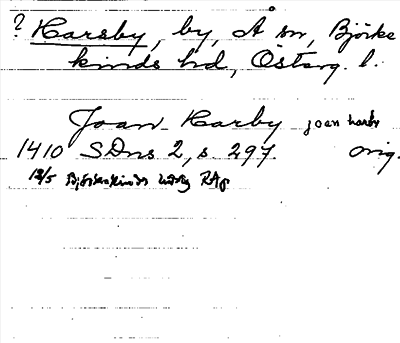 ? Harsby, by, Å sn, Björke
kinds hd, Östrg. l.
Joan Harby joan harby
1410 SDns 2, s. 297. orig.
12/5 Björkekinds hdtg RAp